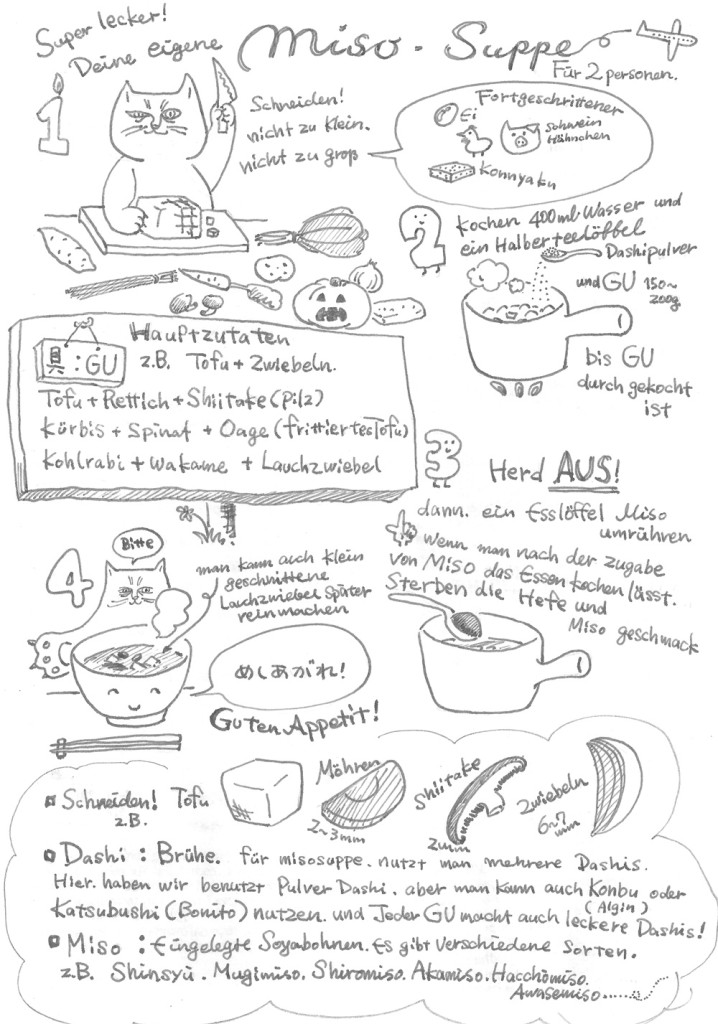 Super lecker!
Deine eigene
Miso-Suppe
Für 2 personen.
1
Schneiden!
nicht zu klein.
nicht zu groß
Fortgeschrittener
Ei
Schwein
Hähnchen
Konnyaku
2
Kochen 400ml. Wasser und
ein Halber teelöffel
Dashipulver
und GU 150~
200g
bis GU
durch gekocht
ist
具:GU
Hauptzutaten
z.B. Tofu + Zwiebeln.
Tofu + Rettich + Shiitake (Pilz)
Kürbis + Spinat + Oage (frittiertes Tofu)
Kohlrabi + Wakame + Lauchzwiebel
3
Herd AUS!
dann. ein Esslöffel Miso
umrühren
wenn man nach der zugabe
von Miso das Essen kochen lässt.
Sterben die Hefe und
Miso geschmack
4
Bitte
man kann auch klein
geschnittene
Lauchzwiebel später
reinmachen
めしあがれ!
Guten Appetit!
Schneiden! Tofu
z.B.
Möhren
2~3mm
Shiitake
2mm
Zwiebeln
6~7
mm
Dashi: Brühe. für misosuppe. nutzt man mehrere Dashis.
Hier. haben wir benutzt Pulver Dashi. aber man kann auch Konbu oder
(Algin)
Katsubushi (Bonito) nutzen. und Jeder GU macht auch leckere Dashis!
Miso: Eingelegte Soyabohnen. Es gibt verschiedene Sorten.
z.B. Shinsyū. Mugimiso. Shiromiso. Akamiso. Hacchōmiso.
Awasemiso......